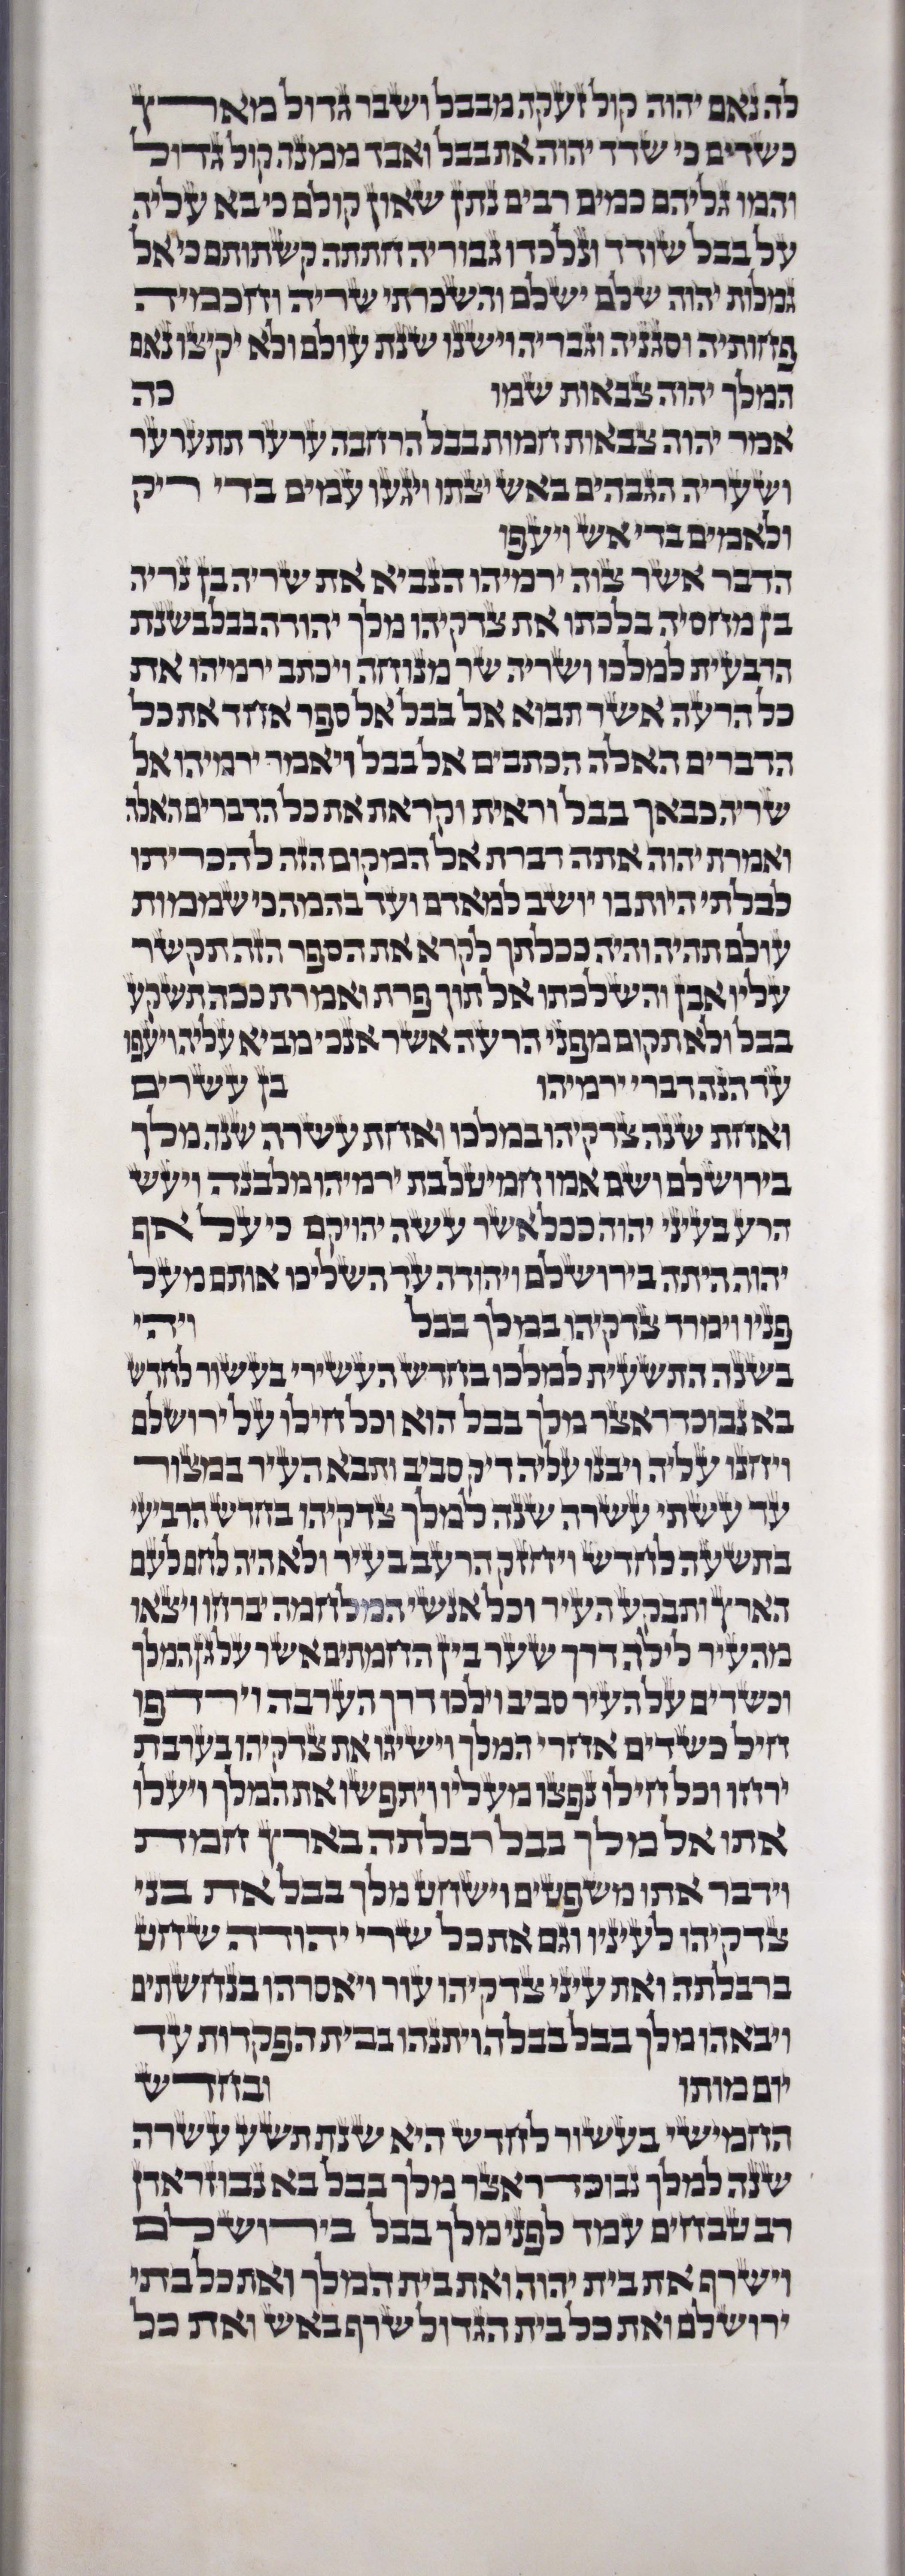 לה נאם יהוה קול זעקה מבבל ושבר גדול מארץ
כשדים כי שדד יהוה את בבל ואבד ממנה קול גדול
והמו גליהם כמים רבים נתן שאון קולם כי בא עליה
על בבל שודד ונלכדו גבוריה חתתה קשתותם כי אל
גמלות יהוה שלם ישלם והשכרתי שריה וחכמיה
פחותיה וסגניה וגבריה וישנו שנת עולם ולא יקיצו נאם
המלך יהוה צבאות שמו כה
אמר יהוה צבאות חמות בבל הרחבה ערער תתערער
ושעריה הגבהים באש יצתו ויגעו עמים בדי ריק
ולאמים בדי אש ויעפו
הדבר אשר צוה ירמיהו הנביא את שריה בן נריה
בן מחסיה בלכתו את צדקיהו מלך יהודה בבל בשנת
הרבעית למלכו ושריה שר מנוחה ויכתב ירמיהו את
כל הרעה אשר תבוא אל בבל אל ספר אחד את כל
הדברים האלה הכתבים אל בבל ויאמר ירמיהו אל
שריה כבאך בבל וראית וקראת את כל הדברים האלה
ואמרת יהוה אתה דברת אל המקום הזה להכריתו
לבלתי היות בו יושב למאדם ועד בהמה כי שממות
עולם תהיה והיה ככלתך לקרא את הספר הזה תקשר
עליו אבן והשלכתו אל תוך פרת ואמרת ככה תשקע
בבל ולא תקום מפני הרעה אשר אנכי מביא עליה ויעפו
עד הנה דברי ירמיהו בן עשרים
ואחת שנה צדקיהו במלכו ואחת עשרה שנה מלך
בירושלם ושם אמו חמיטל בת ירמיהו מלבנה ויעש
הרע בעיני יהוה ככל אשר עשה יהויקם כי על אף
יהוה היתה בירושלם ויהודה עד השליכו אותם מעל
פניו וימרד צדקיהו במלך בבל ויהי
בשנה התשעית למלכו בחדש העשירי בעשור לחדש
בא נבוכדראצר מלך בבל הוא וכל חילו על ירושלם
ויחנו עליה ויבנו עליה דיק סביב ותבא העיר במצור
עד עשתי עשרה שנה למלך צדקיהו בחדש הרביעי
בתשעה לחדש ויחזק הרעב בעיר ולא היה לחם לעם
הארץ ותבקע העיר וכל אנשי המלחמה יברחו ויצאו
מהעיר לילה דרך שער בין החמתים אשר על גן המלך
וכשדים על העיר סביב וילכו דרך הערבה וירדפו
חיל כשדים אחרי המלך וישיגו את צדקיהו בערבת
ירחו וכל חילו נפצו מעליו ויתפשו את המלך ויעלו
אתו אל מלך בבל רבלתה בארץ חמת
וידבר אתו משפטים וישחט מלך בבל את בני
צדקיהו לעיניו וגם את כל שרי יהודה שחט
ברבלתה ואת עיני צדקיהו עור ויאסרהו בנחשתים
ויבאהו מלך בבל בבלה ויתנהו בבית הפקדות עד
יום מותו ובחדש
החמישי בעשור לחדש היא שנת תשע עשרה
שנה למלך נבוכדראצר מלך בבל בא נבוזראדן
רב טבחים עמד לפני מלך בבל בירושלם
וישרף את בית יהוה ואת בית המלך ואת כל בתי
ירושלם ואת כל בית הגדול שרף באש ואת כל